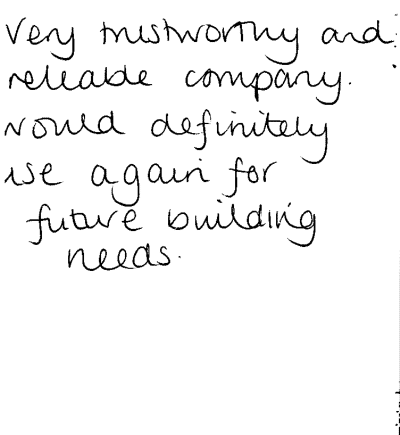 Very trustworthy and
reliable company.
Would definitely
use again for
future building
needs.